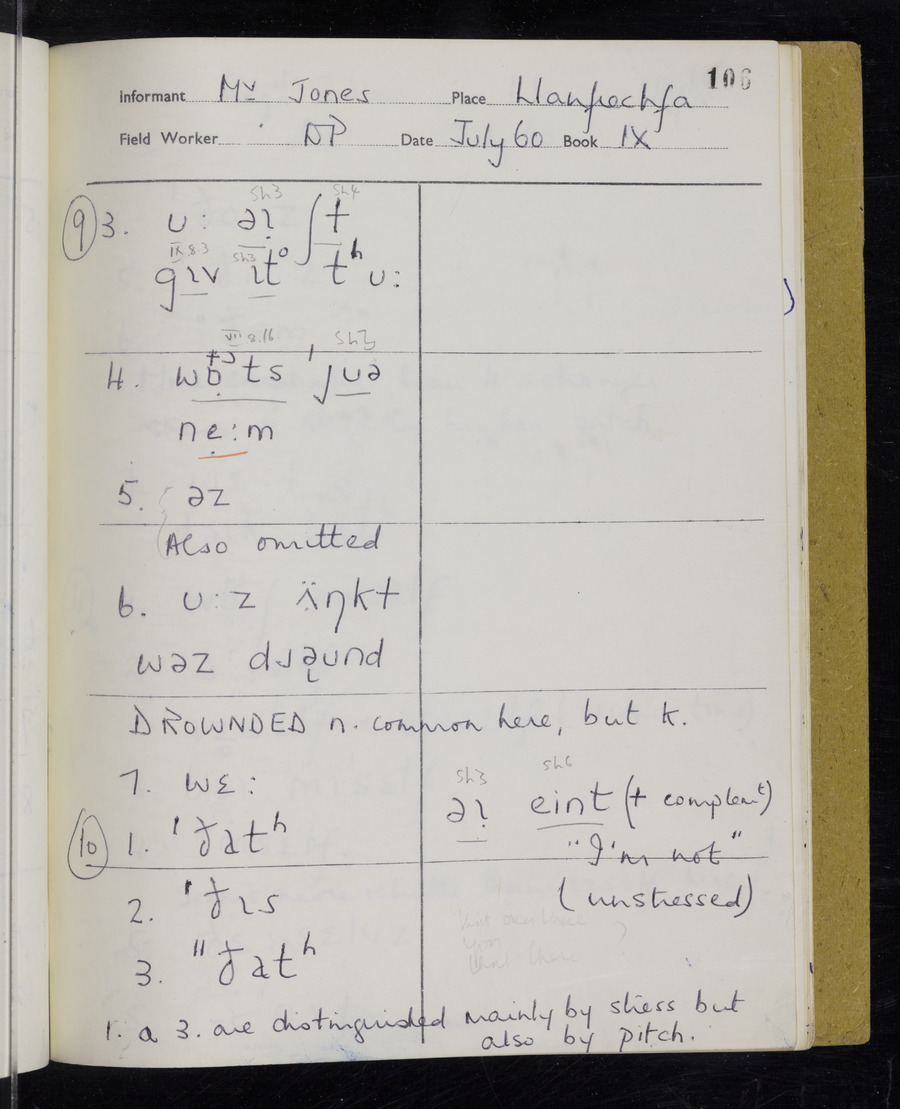 106
Informant Mr Jones Place Llanfrechfa
Field Worker DP Date July 60 Book IX
sh3 sh4
⑨ 3. u: əɪ ʃt
IX 8.3 sh3
gɪv ɪt° tʰ u:
VII 8.16 sh2
4. wɒts ˈjuə
ne:m
5. əz
Also omitted
6. u:z ӓŋkt
wəz dɹəund
DROWNDED n. common here, but k.
7. wɛ:
sh3 sh6
əɪ eint (+ complemt)
"I'm not"
(unstressed)
⑩ 1. ˈðatʰ
2. ˈðɪs
3. "ðatʰ
1. a 3. are distinguished mainly by stress but
also by pitch.